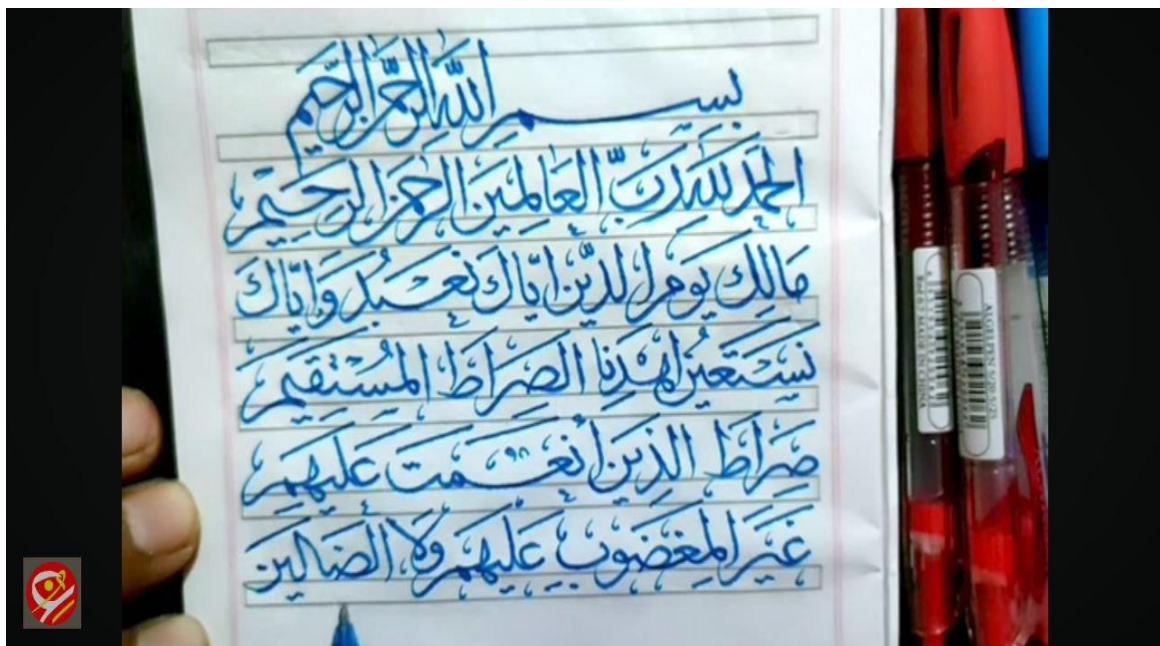 بسم الله الرحمن الرحيم
الحمد لله رب العالمين الرحمن الرحيم
مالك يوم الدين اياك نعبد واياك
نستعين اهدنا الصراط المستقيم
صراط الذين أنعمت عليهم
غير المغضوب عليهم ولا الضالين